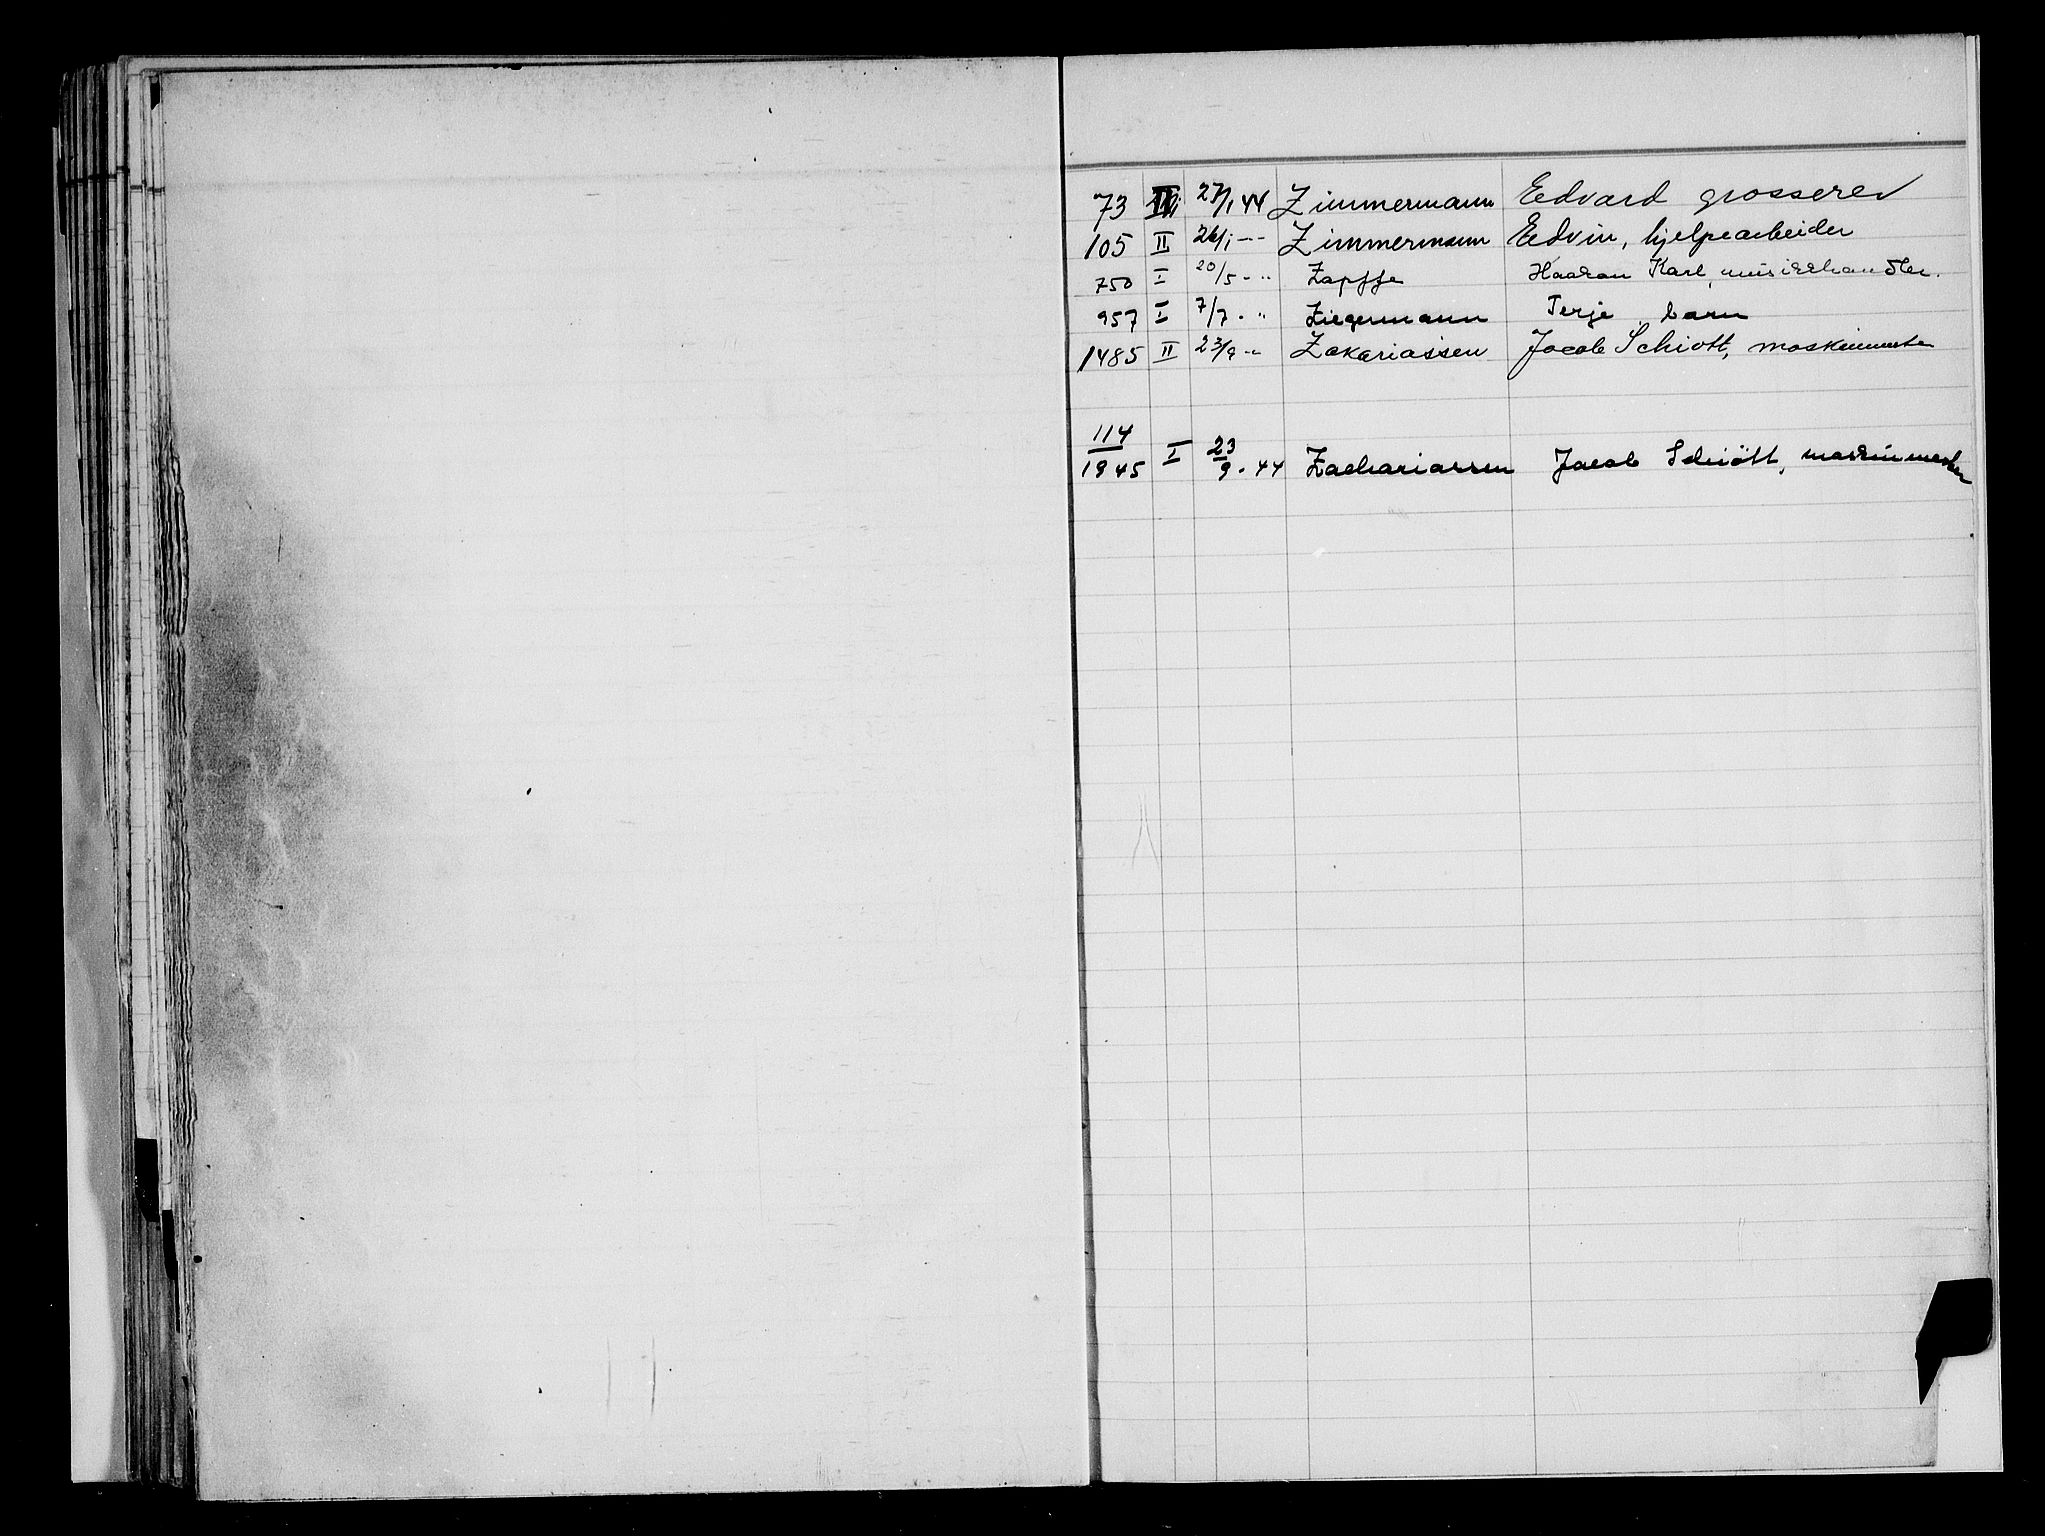 73 II 27/1 44 Zimmermann Edvard grosserer
105 II 26/1 -- Zimmermann Edvin, hjelpearbeider
750 I 20/5 - " Zapffe Haakon Karl, musikkhandler.
957 I 7/7 - " Ziegermann Terje barn
1485 II 23/9 -" Zakariassen Jacob Schiøtt, maskinmester
114
1945 I 23/9 - 44 Zachariassen Jacob Schiött, maskinmester